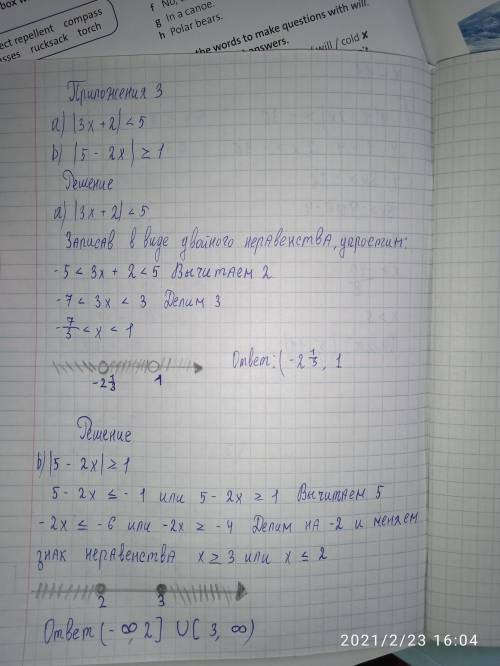 box w
ect repellent compass
sses rucksack torch
f No,
g In a canoe.
h Polar bears.
the words to make questions with will.
answers.
will / cold x
Приложения 3
a) |3x + 2| < 5
b) |5 - 2x| ≥ 1
Решение
a) |3x + 2| < 5
Записав в виде двойного неравенства, упростим:
-5 < 3x + 2 < 5 Вычитаем 2
-7 < 3x < 3 Делим 3
-7/3 < x < 1
-2 1/3 1
Ответ: (-2 1/3, 1
Решение
b) |5 - 2x| ≥ 1
5 - 2x ≤ -1 или 5 - 2x ≥ 1 Вычитаем 5
-2x ≤ -6 или -2x ≥ -4 Делим на -2 и меняем
знак неравенства x ≥ 3 или x ≤ 2
2 3
Ответ (-∞ 2] U [3, ∞)
2021/2/23 16:04